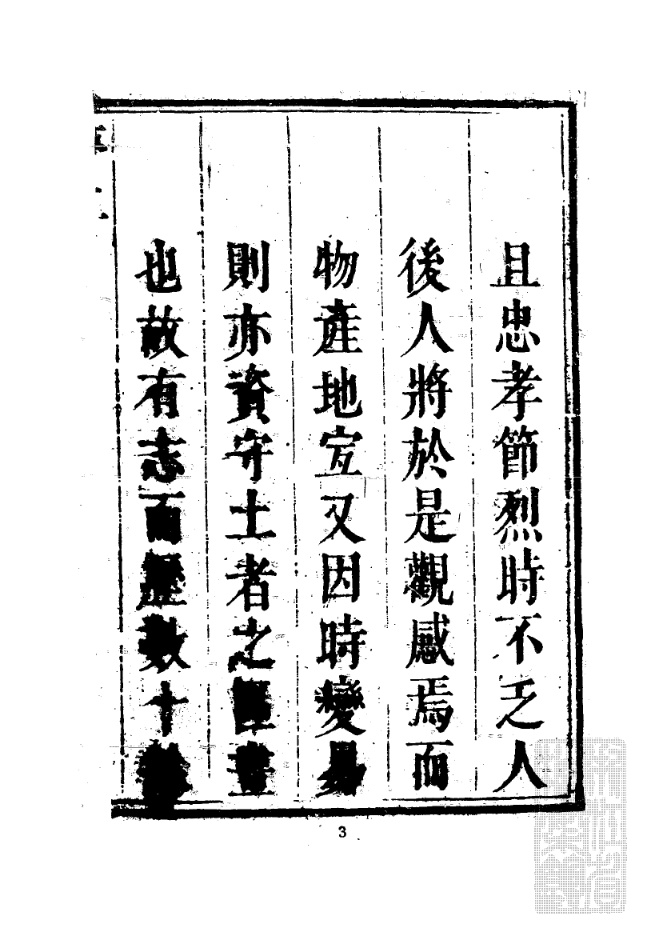 且忠孝節烈時不乏人
後人將於是觀感焉而
物產地宜又因時變易
則亦資守土者之畫
也故有志而歷數十
3